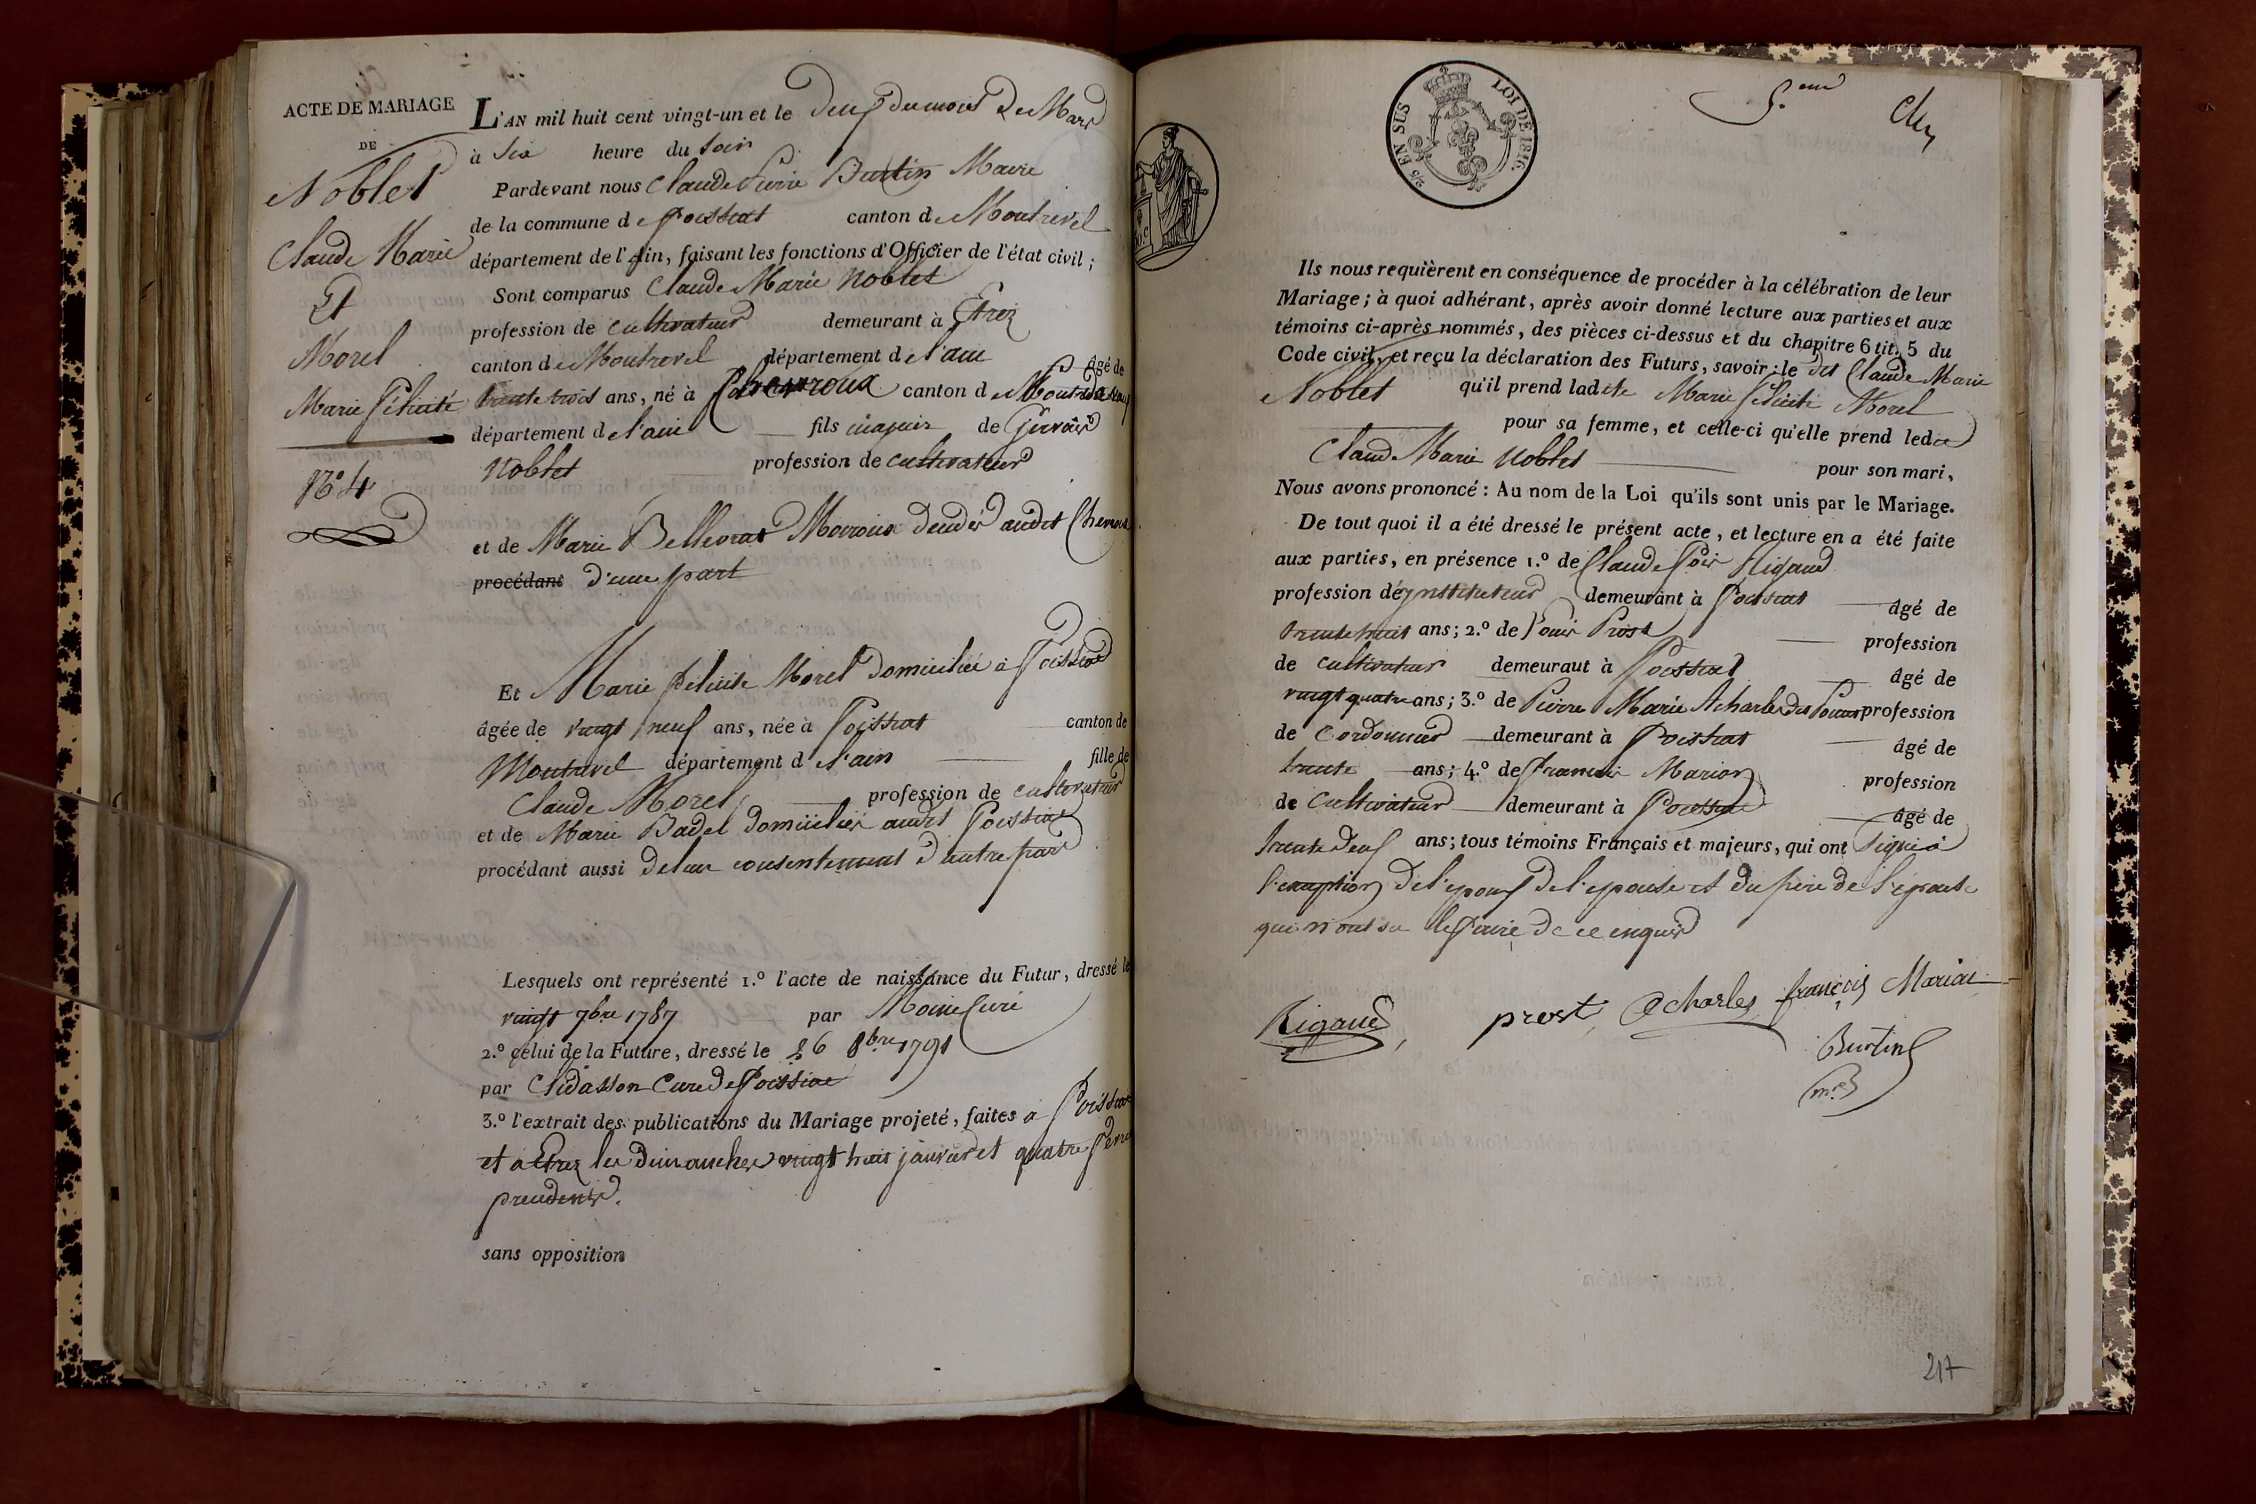 ACTE DE MARIAGE
DE
Noblet
Claude Marie
Et
Morel
Marie Félicité
N.º 4
L'AN mil huit cent vingt-un et le deux du mois de Mars
à Six heure du Soir
Pardevant nous Claude Pierre Burtin Maire
de la commune de foissiat canton de Montrevel
département de l'Ain, faisant les fonctions d'Officier de l'état civil ;
Sont comparus Claude Marie Noblet
profession de cultivateur demeurant à Etrez
canton de Montrevel département de l'ain âgé de
trente trois ans, né à Chevroux canton d
département de l'ain fils majeur de Gervais
Noblet profession de cultivateur
et de Marie Bellevrat décédés audit Chevroux
procédant d'une part
Et Marie félicité Morel domiciliée à foissiat
âgée de vingt neuf ans, née à foissiat canton de
Montrevel département d l'ain fille de
Claude Morel profession de cultivateur
et de Marie Badel domiciliés audit foissiat
procédant aussi de leur consentement d'autre part
Lesquels ont représenté 1.º l'acte de naissance du Futur, dressé le
vingt 7bre 1787 par Moine Curé
2.º celui de la Future, dressé le 26 8bre 1791
par Curé de foissiat
3.º l'extrait des publications du Mariage projeté, faites à foissiat
et à Etrez les dimanches vingt huit janvier et quatre
sans opposition
EN SUS
LOI DE 1816.
5.eme
Ils nous requièrent en conséquence de procéder à la célébration de leur
Mariage ; à quoi adhérant, après avoir donné lecture aux parties et aux
témoins ci-après nommés, des pièces ci-dessus et du chapitre 6 tit. 5 du
Code civil, et reçu la déclaration des Futurs, savoir : le dit Claude Marie
Noblet qu'il prend ladite Marie félicité Morel
pour sa femme, et celle-ci qu'elle prend ledit
Claude Marie Noblet pour son mari,
Nous avons prononcé : Au nom de la Loi qu'ils sont unis par le Mariage.
De tout quoi il a été dressé le présent acte, et lecture en a été faite
aux parties, en présence 1.º de Claude Rigaud
profession de ynstituteur demeurant à foissiat âgé de
trente huit ans ; 2.º de Louis Prost profession
de cultivateur demeuraut à foissiat âgé de
vingt quatre ans ; 3.º de Pierre Marie Acharles profession
de Cordonnier demeurant à foissiat âgé de
trente ans ; 4.º de francois Marion profession
de Cultivateur demeurant à foissiat âgé de
trente deux ans ; tous témoins Français et majeurs, qui ont signé à
l'exception de l'epoux de l'epouse et du père de l'épouse
qui n'ont su le faire de ce enquis
Rigaud,
prost
acharles
françois Marion
Burtin
mre
217